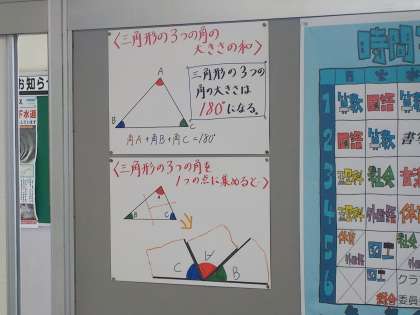 お知らせ
下水道
〈三角形の3つの角の
大きさの和〉
A
B
C
三角形の3つの
角の大きさは
180°になる。
角A+角B+角C=180°
〈三角形の3つの角を
1つの点に集めると…〉
A
B
C
C
A
B
時間
月
火
水
1
算数
国語
算数
2
国語
算数
書
3
理科
社会
音楽
4
理科
外国語
体育
5
体育
図工
6
図工
クラ
委員